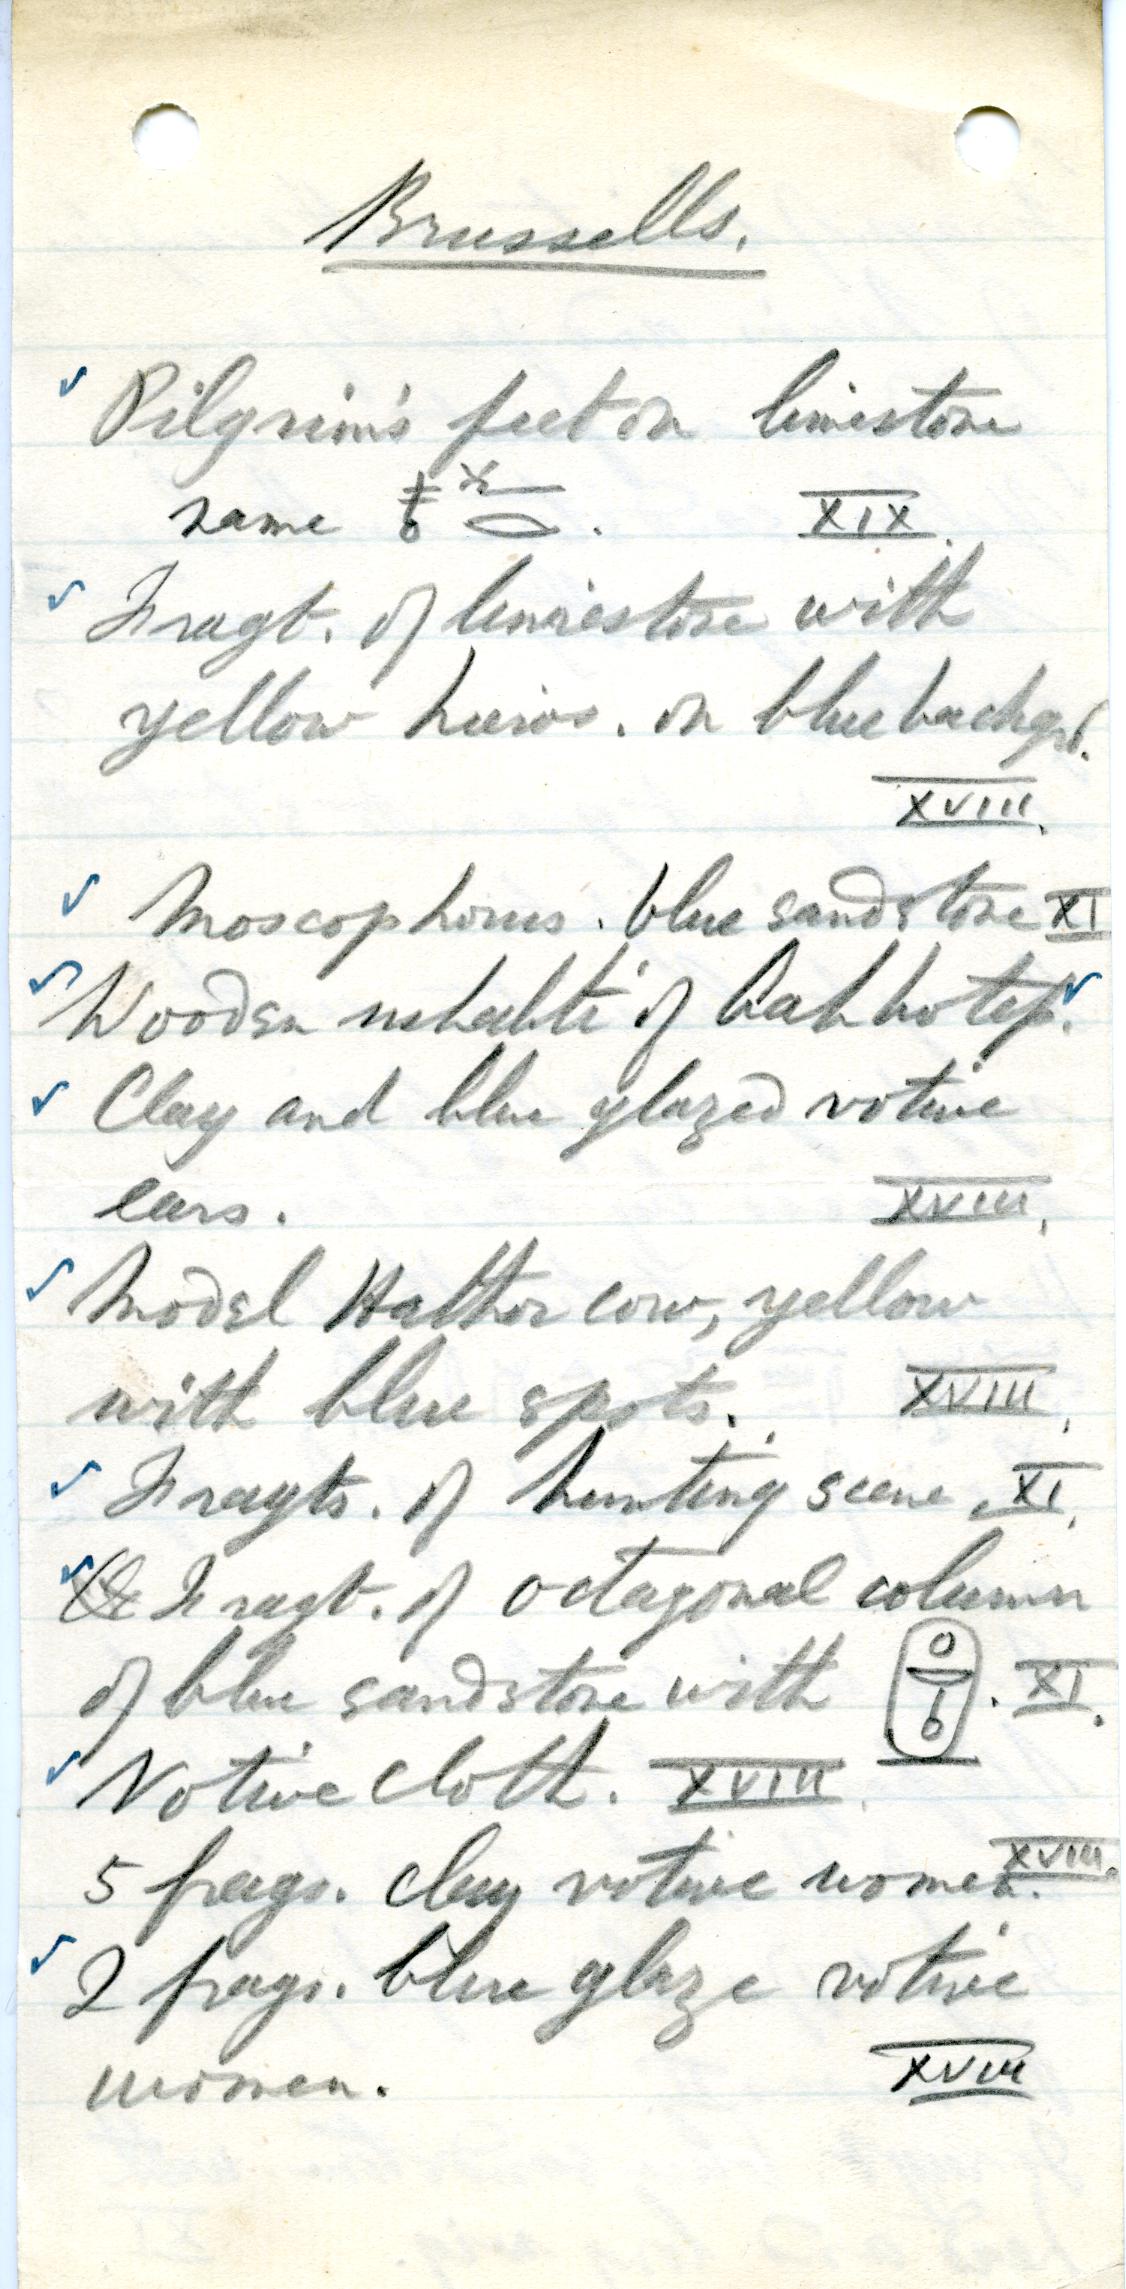 Brussells.
✓ Pilgrim's feet on limestone
name 𓄤𓂋. XIX.
✓ Fragt. of limestone with
yellow hieros. on blue backgrd.
XVIII.
✓ Moscophorus. blue sandstone XI
✓ Wooden ushabti of Bakhotep. ✓
✓ Clay and blue glazed votive
ears. XVIII.
✓ Model Hathor cow, yellow
with blue spots. XVIII.
✓ Fragts. of hunting scene. XI.
✓ Fragt. of octagonal column
of blue sandstone with 𓍹𓇳𓎟𓊵𓍺. XI.
✓ Votive cloth. XVIII.
5 frags. clay votive women. XVIII.
✓ 2 frags. blue glaze votive
women. XVIII